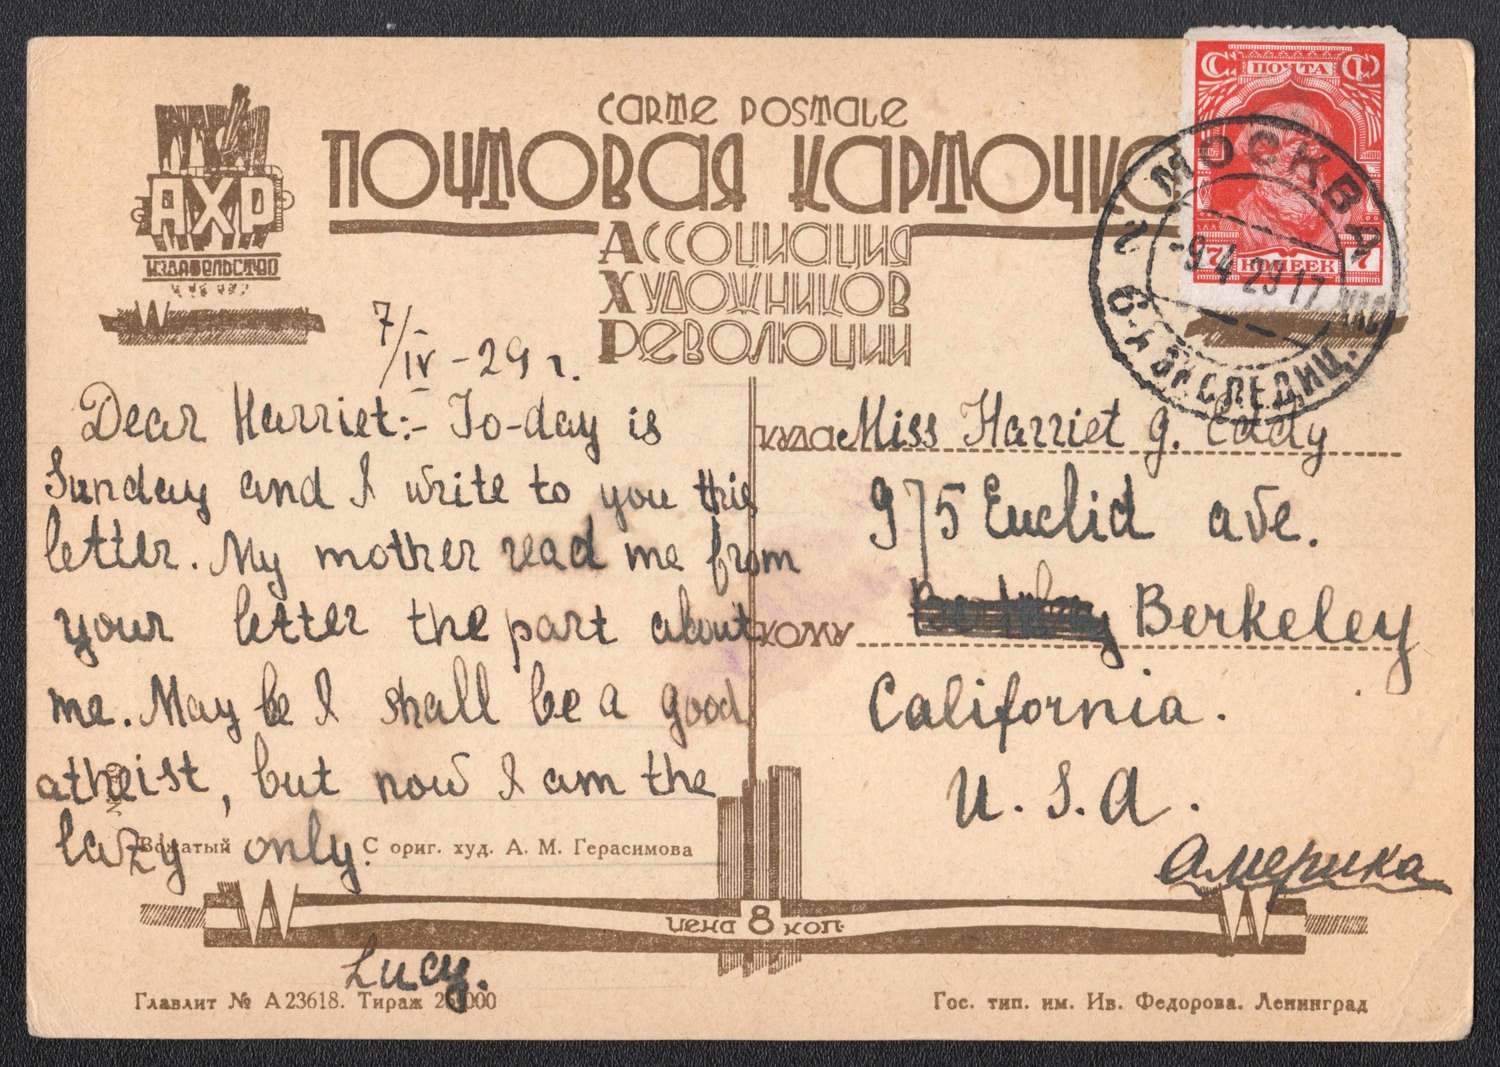 CARTE POSTALE
ПОЧТОВАЯ КАРТОЧКА
АССОЦИАЦИЯ
ХУДОЖНИКОВ
РЕВОЛЮЦИИ
АХР
ИЗДАТЕЛЬСТВО
ПОЧТА
7 КОПЕЕК 7
МОСКВА
-9.4 29 17
6-Я ЭКСПЕДИЦ.
7/IV-29 г.
Dear Harriet:- To-day is
Sunday and I write to you this
letter. My mother read me from
your letter the part about
me. May be I shall be a good
atheist, but now I am the
lazy only.
Lucy.
КУДА Miss Harriet G. Eddy
975 Euclid ave.
КОМУ Berkeley
California.
U.S.A.
Америка
Вожатый С ориг. худ. А. М. Герасимова
ЦЕНА 8 КОП.
Главлит № А 23618. Тираж 20000
Гос. тип. им. Ив. Федорова. Ленинград